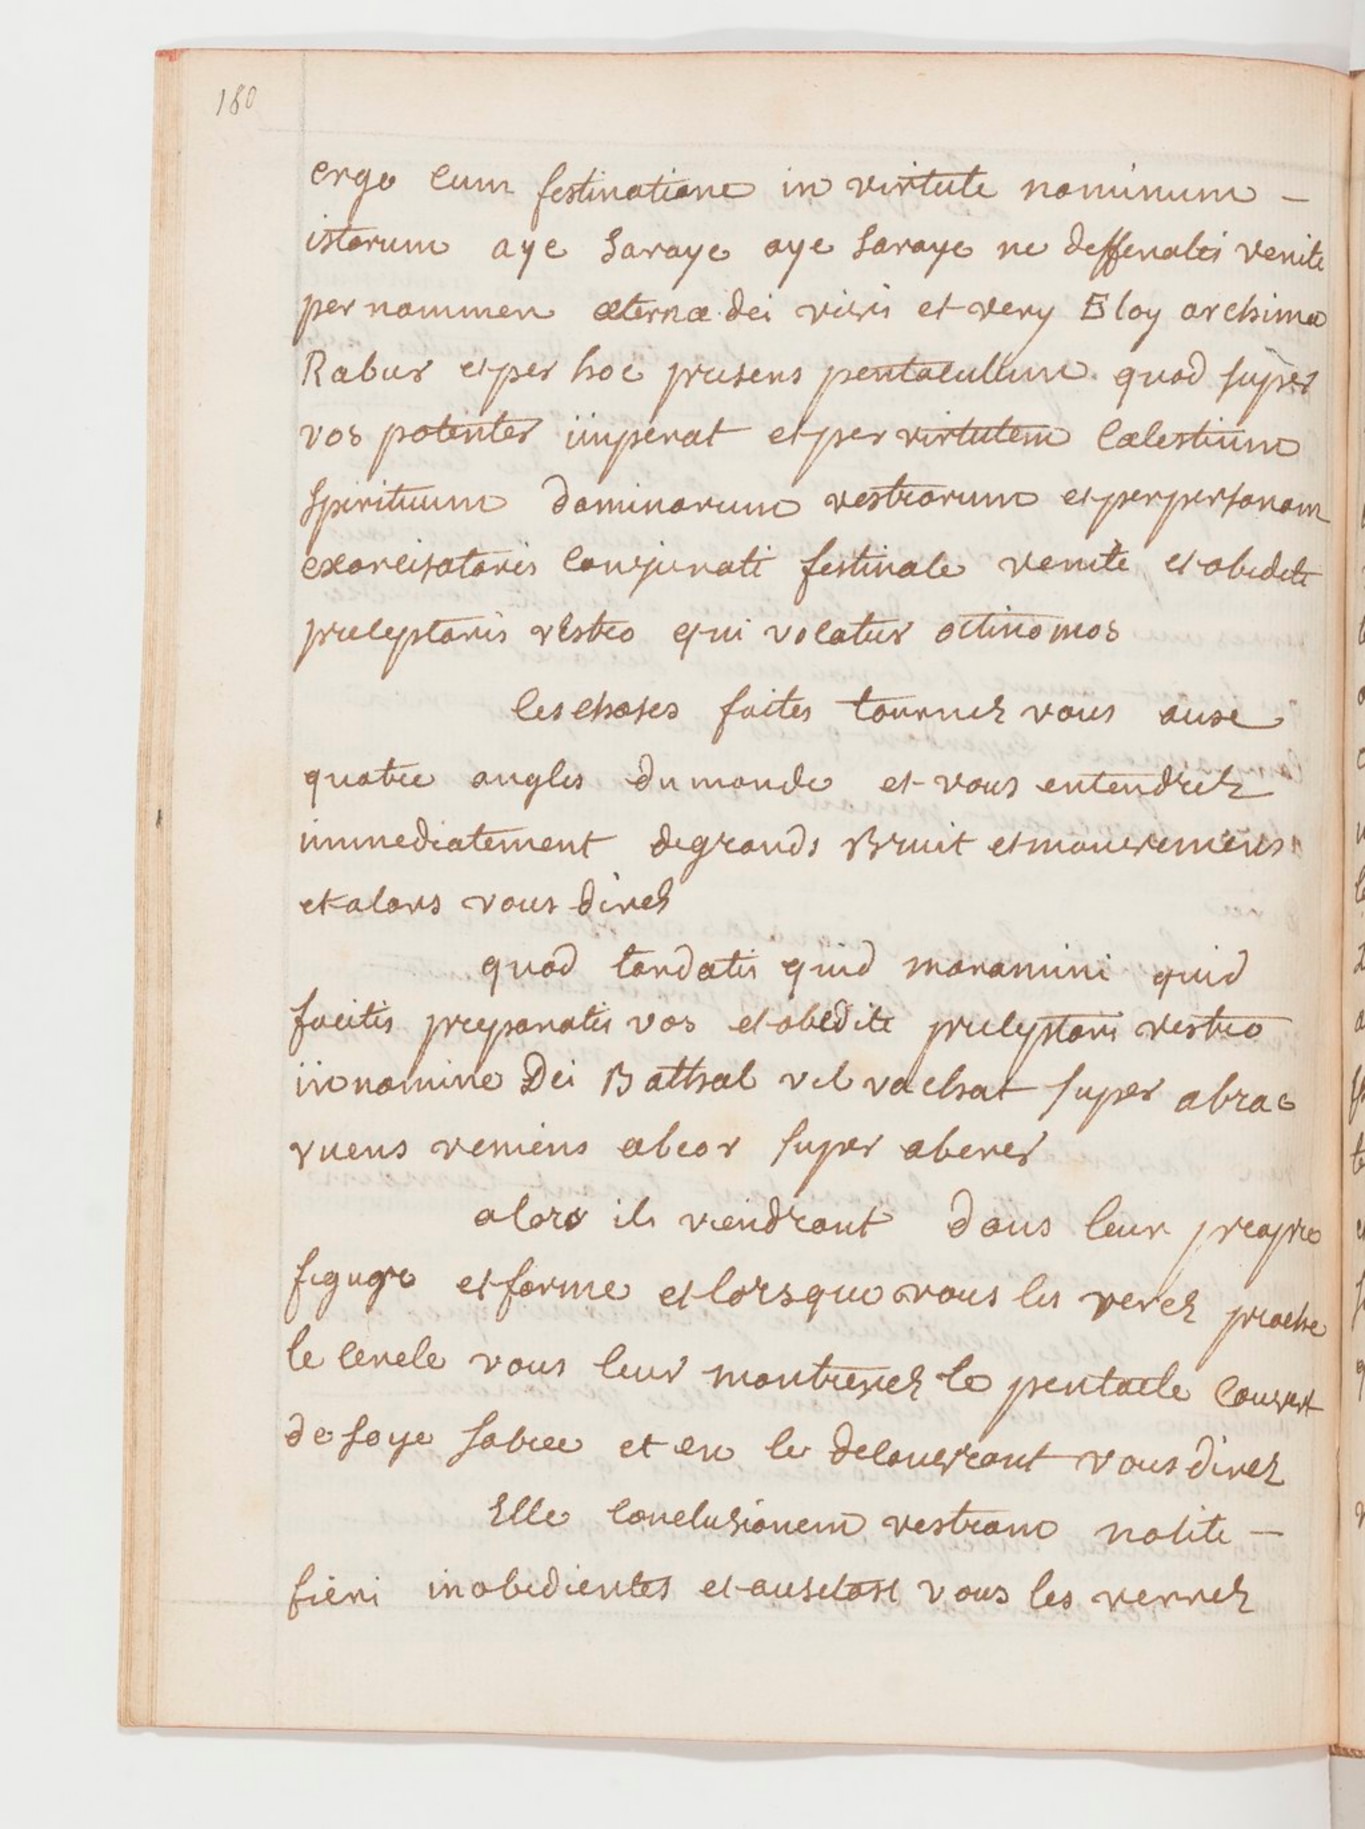 180
ergo cum festinatione in virtute nominum –
istorum aye saraye aye saraye ne deffenalei venite
per nommen æternæ dei vivis et very Eloy archima
Rabur et per hoc presens pentacullum quod super
vos potenter imperat et per virtutem Cælestium
spirituum dominorum vestrorum et per personam
exorcisatoris Conjurati festinale venite et obedite
preceptoris vestro qui vocatur octinomos
Ces choses faites tournez vous ause
quatre angles du monde et vous entendrez
immediatement de grands Bruit et mouvemens
et alors vous direz
quod tardatis quid moramini quid
facitis preparatis vos et obedite preceptori vestro
in nomine Dei Bathal vel vachat super abrac
ruens veniens abeor super aberer
alors ils viendront dans leur propre
figugre et forme et lorsque vous les verez proche
le cercle vous leur montrerez le pentacle Couvert
de soye sacree et en le decouvrant vous direz
Elle Conclusionem vestram nolite –
fieri inobedientes et ausitost vous les verrez